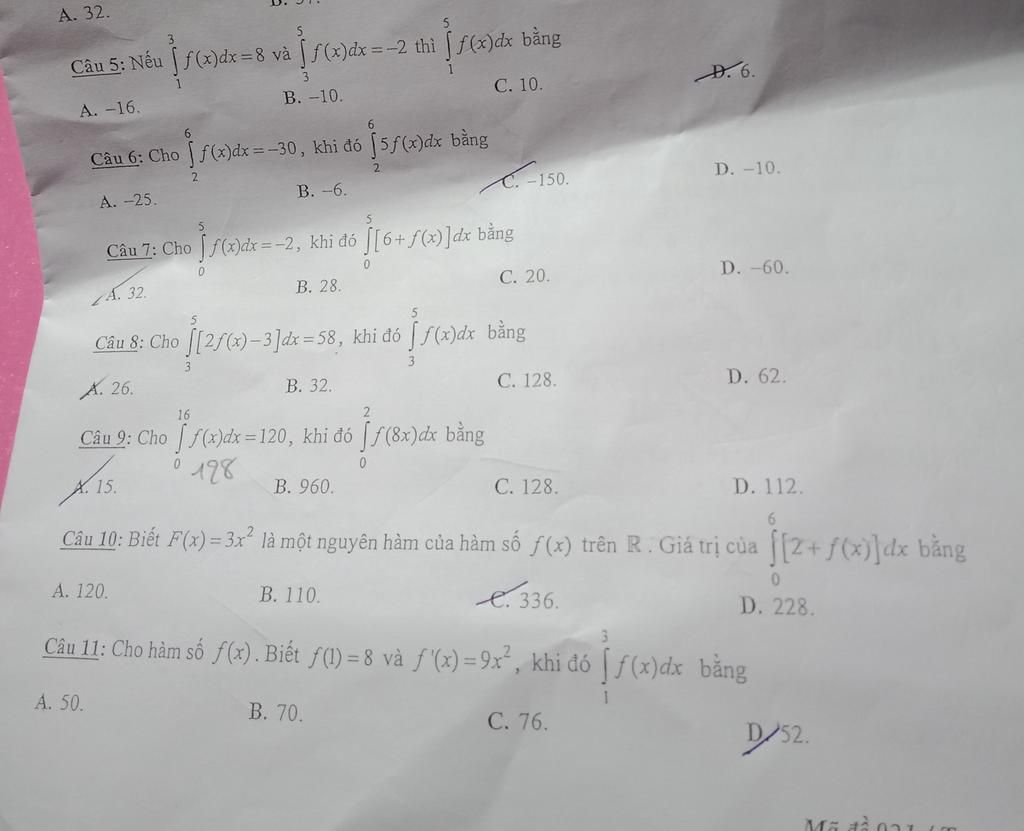 A. 32.
Câu 5: Nếu ∫₁³ f(x)dx = 8 và ∫₃⁵ f(x)dx = −2 thì ∫₁⁵ f(x)dx bằng
A. −16. B. −10. C. 10. D. 6.
Câu 6: Cho ∫₂⁶ f(x)dx = −30, khi đó ∫₂⁶ 5f(x)dx bằng
A. −25. B. −6. C. −150. D. −10.
Câu 7: Cho ∫₀⁵ f(x)dx = −2, khi đó ∫₀⁵ [6 + f(x)]dx bằng
A. 32. B. 28. C. 20. D. −60.
Câu 8: Cho ∫₃⁵ [2f(x) − 3]dx = 58, khi đó ∫₃⁵ f(x)dx bằng
A. 26. B. 32. C. 128. D. 62.
Câu 9: Cho ∫₀¹⁶ f(x)dx = 120, khi đó ∫₀² f(8x)dx bằng
128
A. 15. B. 960. C. 128. D. 112.
Câu 10: Biết F(x) = 3x² là một nguyên hàm của hàm số f(x) trên ℝ. Giá trị của ∫₀⁶ [2 + f(x)]dx bằng
A. 120. B. 110. C. 336. D. 228.
Câu 11: Cho hàm số f(x). Biết f(1) = 8 và f'(x) = 9x², khi đó ∫₁³ f(x)dx bằng
A. 50. B. 70. C. 76. D. 52.
Mã đề